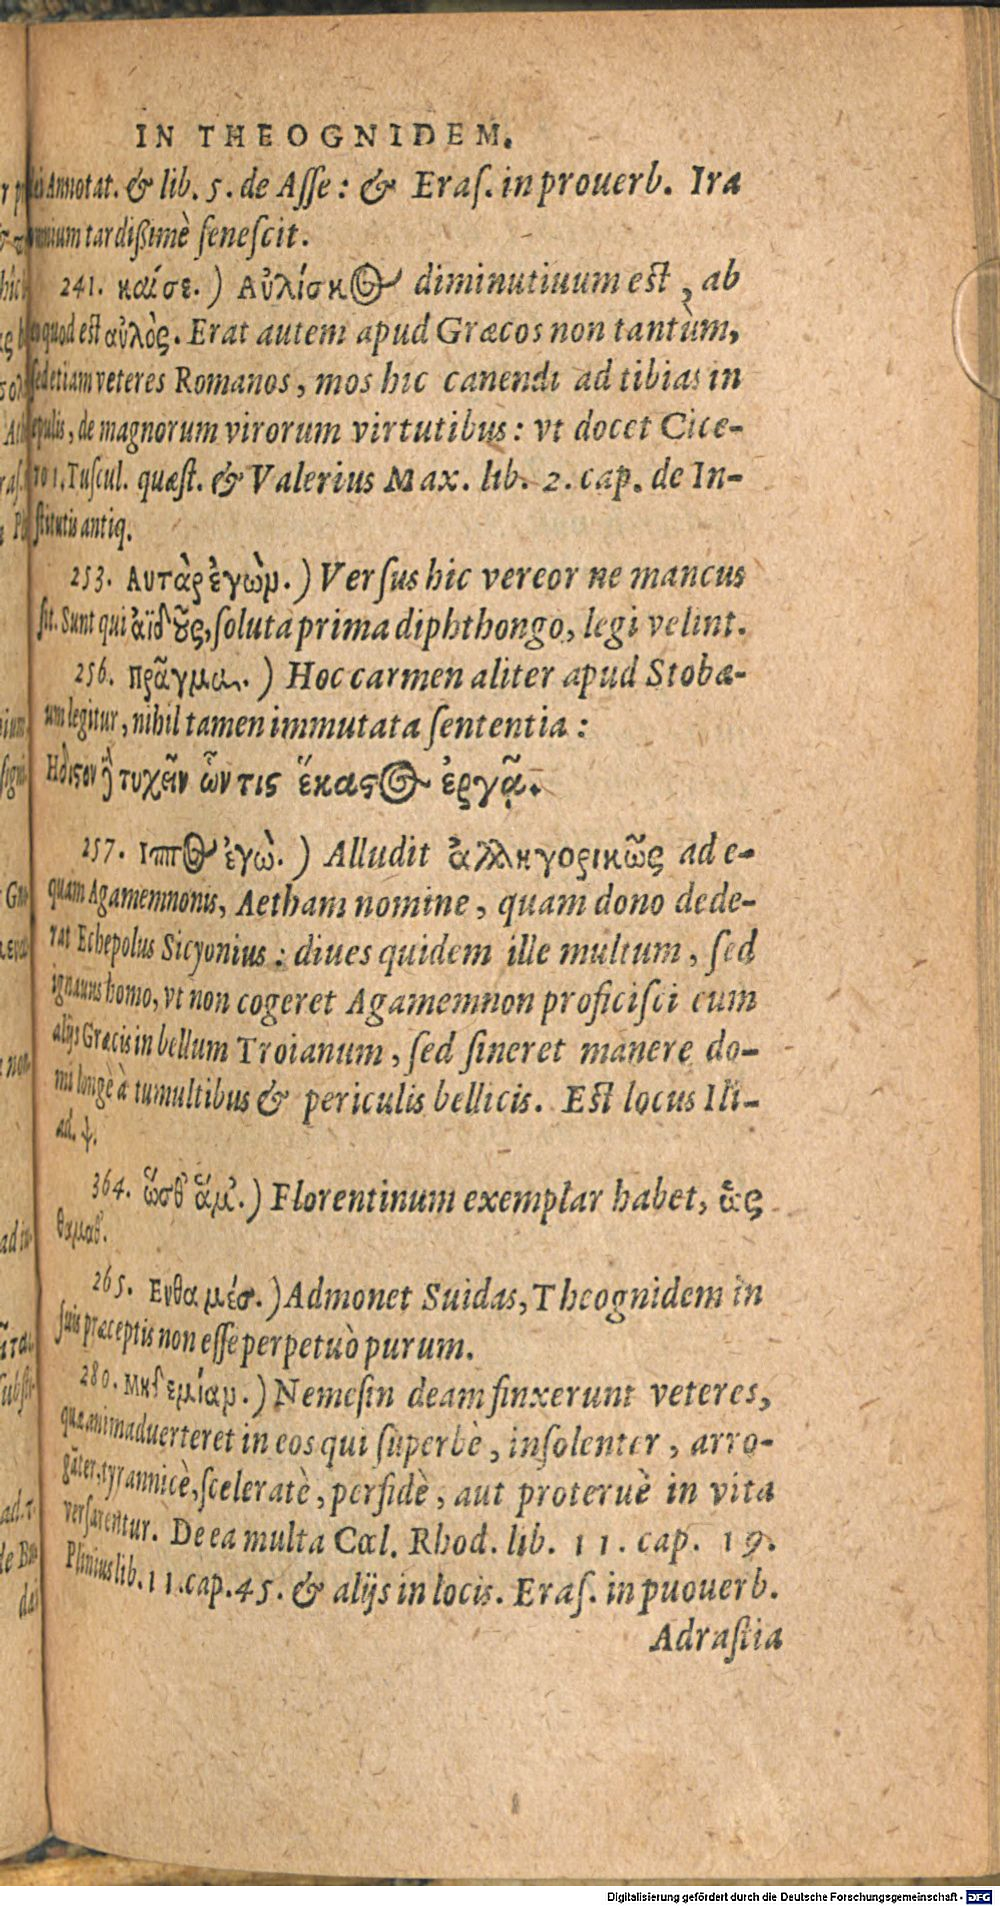 IN THEOGNIDEM.
Annotat. & lib. 5. de Asse: & Eras. in prouerb. Ira
tardißimè senescit.
241. καίσε.) Αὐλίσκος diminutiuum est, ab
quod est αὐλὸς. Erat autem apud Græcos non tantùm,
sed etiam veteres Romanos, mos hic canendi ad tibias in
epulis, de magnorum virorum virtutibus: vt docet Cice-
ro 1. Tuscul. quæst. & Valerius Max. lib. 2. cap. de In-
stitutis antiq.
253. Αυτὰρ ἐγὼμ.) Versus hic vereor ne mancus
sit. Sunt qui ἀϊδοῦς, soluta prima diphthongo, legi velint.
256. πρᾶγμα.) Hoc carmen aliter apud Stobæ-
um legitur, nihil tamen immutata sententia:
Ηδιστον ἢ τυχεῖν ὧν τις ἕκαστος ἐργᾷ.
257. Ιππος ἐγὼ.) Alludit ἀλληγορικῶς ad e-
quam Agamemnonis, Aetham nomine, quam dono dede-
rat Echepolus Sicyonius: diues quidem ille multum, sed
ignauus homo, vt non cogeret Agamemnon proficisci cum
alijs Græcis in bellum Troianum, sed sineret manere do-
mi longè à tumultibus & periculis bellicis. Est locus Ili-
ad. ψ.
364. ὥσθ' ἅμ'.) Florentinum exemplar habet, ἃς
θαμαθ'.
265. Ενθα μέσ.) Admonet Suidas, Theognidem in
suis præceptis non esse perpetuò purum.
280. μηδεμίαμ.) Nemesin deam finxerunt veteres,
quæ animaduerteret in eos qui superbè, insolenter, arro-
gāter, tyrannicè, sceleratè, perfidè, aut proteruè in vita
versarentur. De ea multa Cæl. Rhod. lib. 11. cap. 19.
Plinius lib. 11. cap. 45. & alijs in locis. Eras. in puouerb.
Adrastia
Digitalisierung gefördert durch die Deutsche Forschungsgemeinschaft - DFG